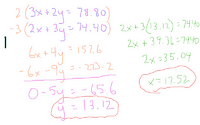 2 (3x+2y = 78.80)
-3 (2x+3y = 74.40)
6x+4y = 157.6
-6x-9y = -223.2
0-5y = -65.6
y = 13.12
2x+3(13.12)=74.40
2x+39.36=74.40
2x=35.04
x=17.52